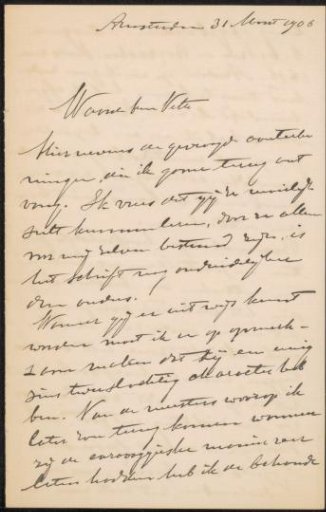 Amsterdam 31 Maart 1906
Waarde heer Veth
Hiernevens de gevraagde aanteeke
ningen, die ik gaarne terug ont
vang. Ik vrees dat gij ze moeilijk
zult kunnen lezen, daar ze alleen
voor mij zelven bestemd zijn, is
het schrift nog onduidelijker
dan anders.
Wanneer gij er uit wijs kunt
worden moet ik er op opmerk-
zaam maken dat zij een eenig
zins tweeslachtig character heb
ben. Van de meesters waarop ik
later zou terug komen wanneer
zij de
laten hadden heb ik de behande